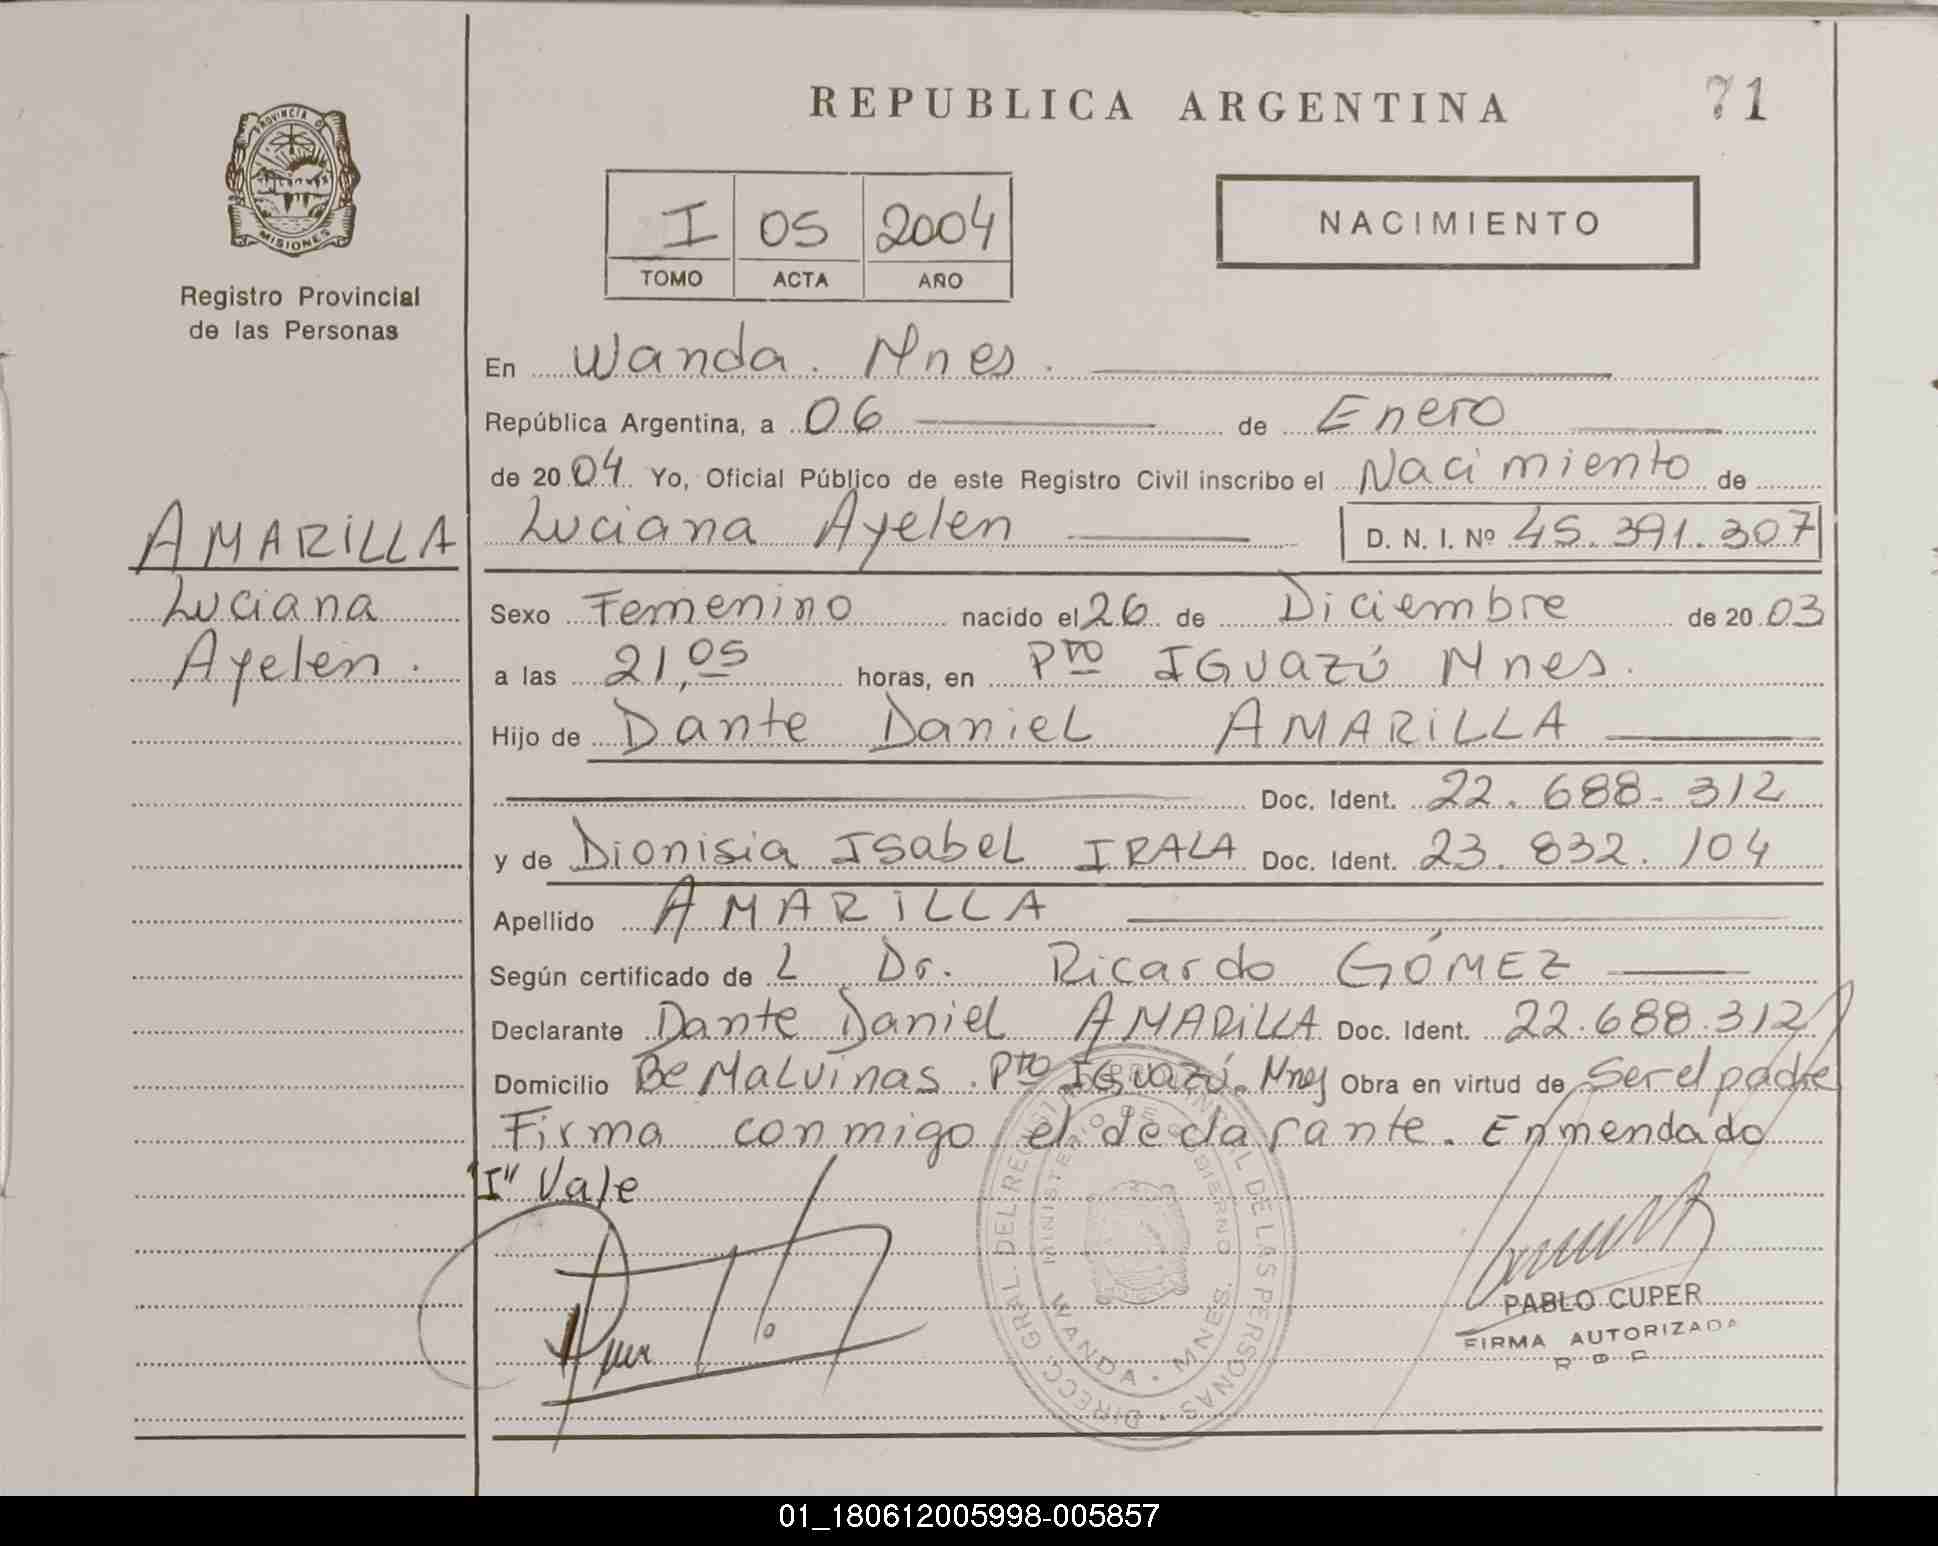 REPUBLICA ARGENTINA
71
PROVINCIA D
MISIONES
Registro Provincial
de las Personas
I 05 2004
TOMO ACTA AÑO
NACIMIENTO
En Wanda. Mnes.
República Argentina, a 06 de Enero
de 2004. Yo, Oficial Público de este Registro Civil inscribo el Nacimiento de
AMARILLA
Luciana
Ayelen.
Luciana Ayelen D. N. I. Nº 45.391.307
Sexo Femenino nacido el 26 de Diciembre de 2003
a las 21,05 horas, en Pto IGuazú Mnes.
Hijo de Dante Daniel AMARILLA
Doc. Ident. 22.688.312
y de Dionisia Isabel IRALA Doc. Ident. 23.832.104
Apellido AMARILLA
Según certificado de L Dr. Ricardo GÓMEZ
Declarante Dante Daniel AMARILLA Doc. Ident. 22.688.312
Domicilio Be Malvinas. Pto IGuazú. Mnes Obra en virtud de Ser el padre
Firma conmigo el declarante. Enmendado
"I" Vale
DIRECC. GRAL. DEL REGISTRO PROVINCIAL DE LAS PERSONAS
MINISTERIO DE GOBIERNO
WANDA - MNES.
PABLO CUPER
FIRMA AUTORIZADA
R P P
01_180612005998-005857